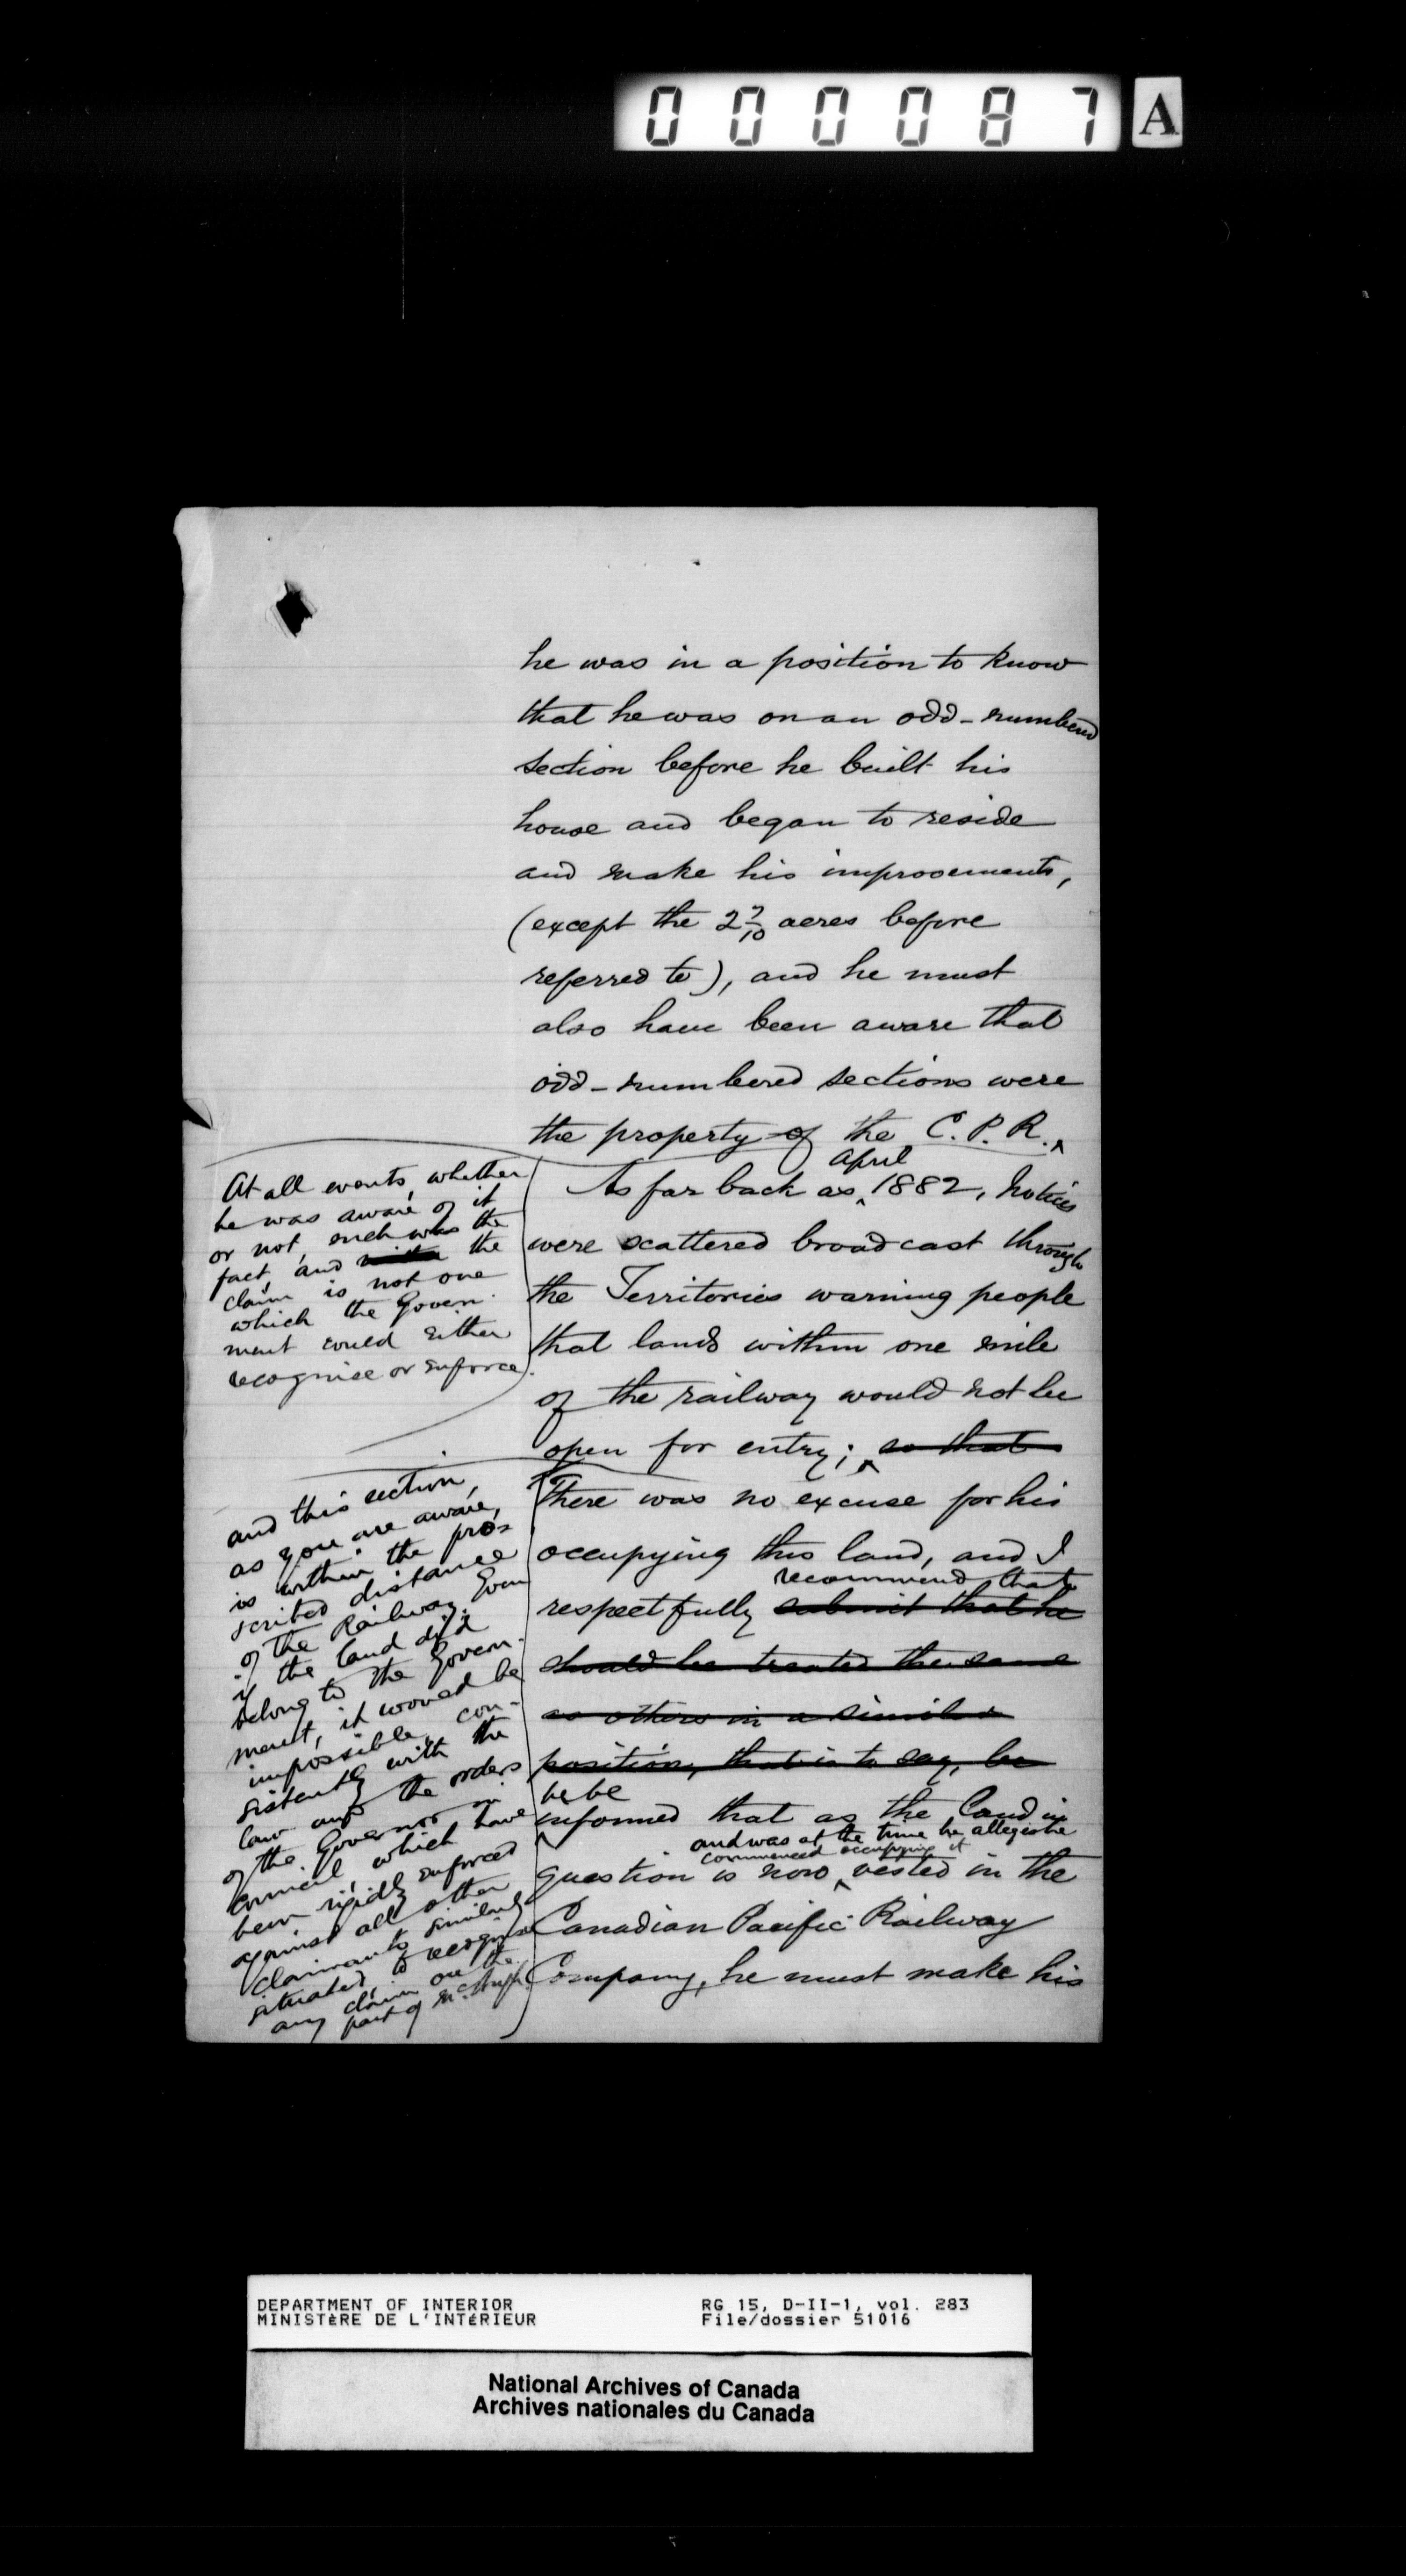 000087 A
he was in a position to know
that he was on an odd-numbered
section before he built his
house and began to reside
and make his improvements,
(except the 2 7/10 acres before
referred to), and he must
also have been aware that
odd-numbered sections were
the property of the C. P. R.
At all events, whether
he was aware of it
or not, such was the
fact, and the
claim is not one
which the Govern-
ment could either
recognise or enforce.
April
As far back as 1882, notices
were scattered broadcast through
the Territories warning people
that lands within one mile
of the railway would not be
open for entry; so that
and this section,
as you are aware,
is within the pros-
cribed distance
of the Railway. Even
if the land did
belong to the Govern-
ment, it would be
impossible, con-
sistently with the
law and the orders
of the Governor in
Council, which have
been rigidly enforced
against all other
claimants similarly
situated, to recognise
any claim on the
part of McHugh.
There was no excuse for his
occupying this land, and I
recommend that
respectfully submit that he
should be treated the same
as others in a similar
position, that is to say, be
he be
informed that as the land in
and was at the time he alleges he
commenced occupying it
question is now vested in the
Canadian Pacific Railway
Company, he must make his
DEPARTMENT OF INTERIOR
MINISTÈRE DE L'INTÉRIEUR
RG 15, D-II-1, vol. 283
File/dossier 51016
National Archives of Canada
Archives nationales du Canada